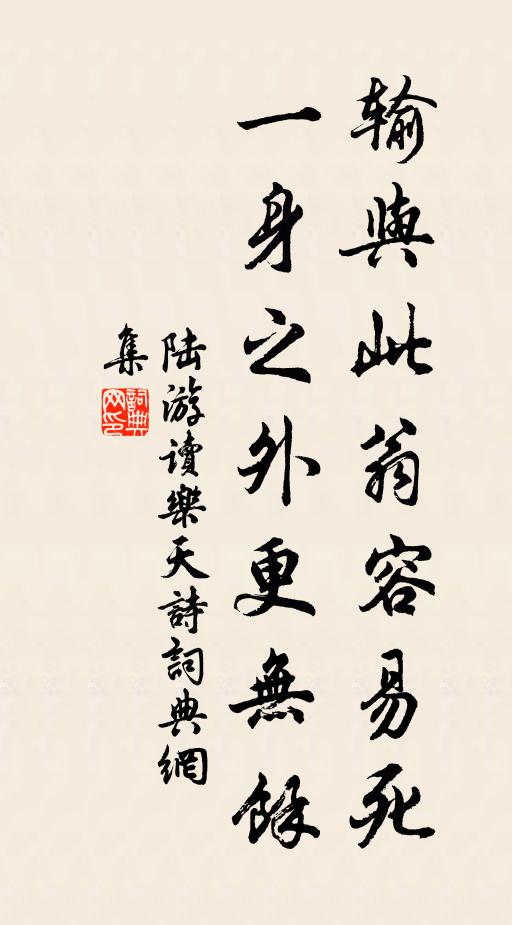 輸與此翁容易死
一身之外更無餘
陆游讀樂天詩詞典網
集
詞典
网印